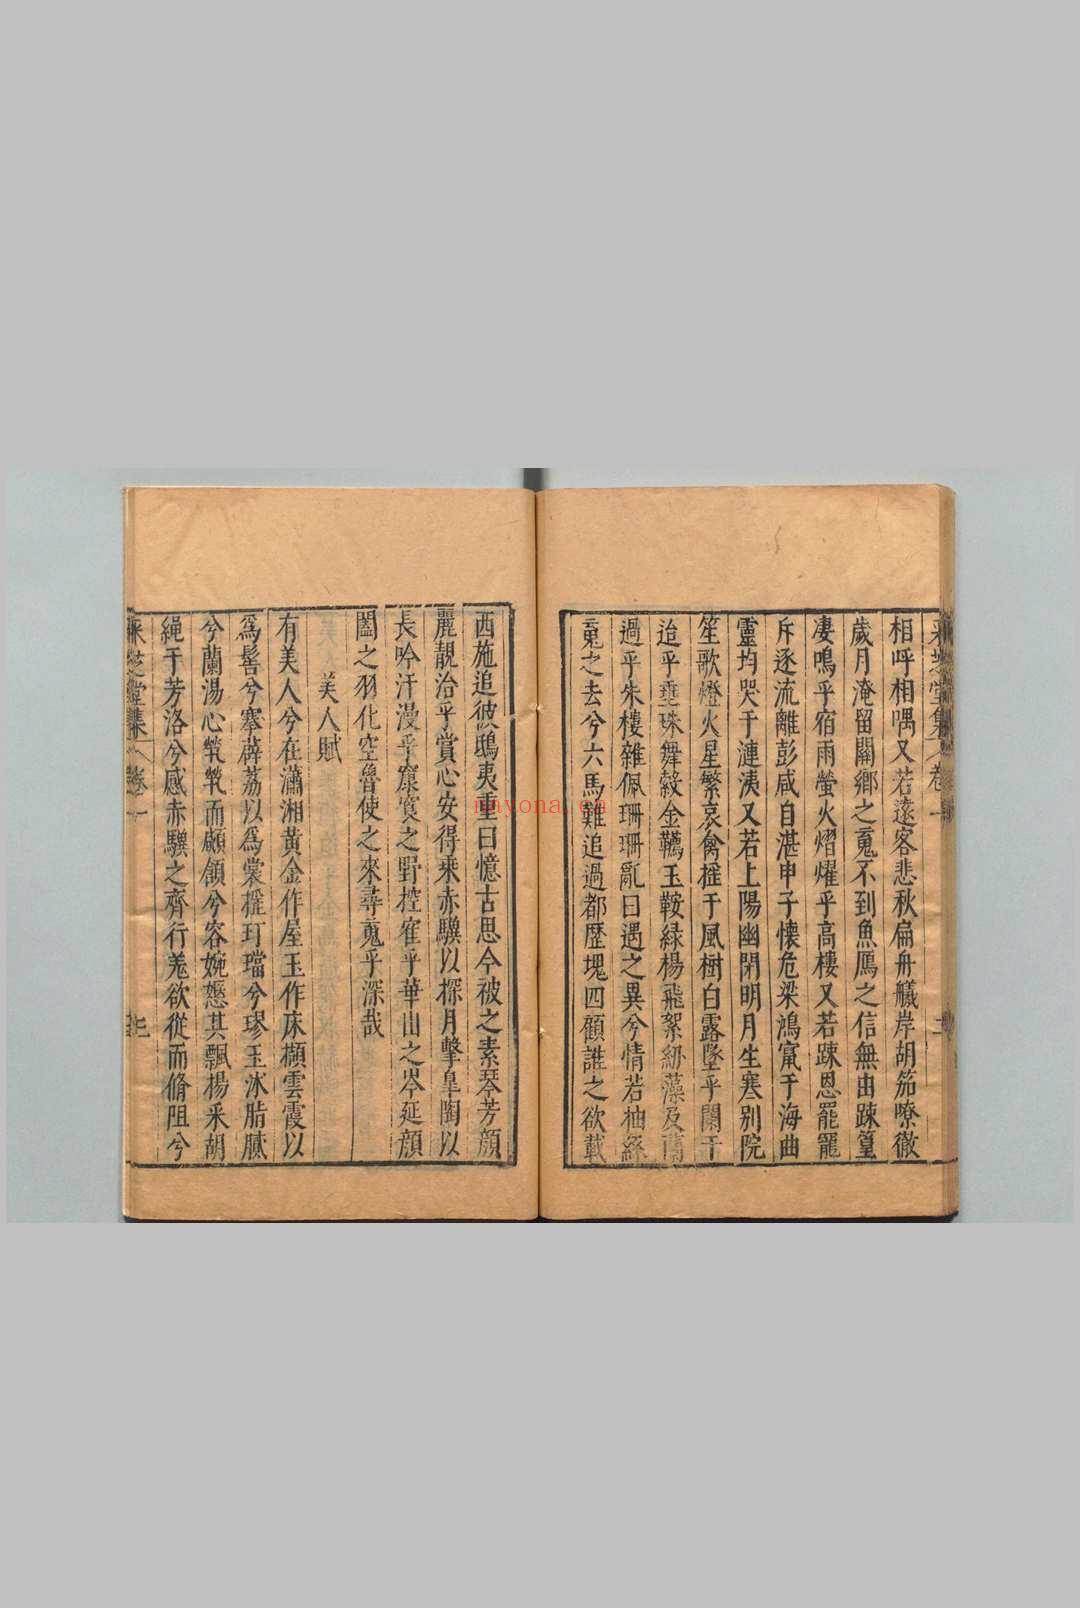 采芝堂集 卷一 二
相呼相喁又若遠客悲秋扁舟艤岸胡笳嘹徹
歲月淹留關鄉之䰟不到魚鴈之信無由踈篁
凄鳴乎宿雨螢火熠燿乎高樓又若踈恩罷寵
斥逐流離彭咸自湛申子懐危梁鴻竄于海曲
靈均哭于漣洟又若上陽幽閉明月生寒別院
笙歌燈火星繁哀禽摧于風樹白露墜乎闌干
迨乎垂珠舞縠金羈玉鞍緑楊飛絮紉藻及蘭
過乎朱樓雜佩珊珊亂曰遇之異兮情若柚綠
䰟之去兮六馬難追過都歷塊四顧誰之欲載
西施追彼鴟夷重曰憶古思今被之素琴芳顔
麗靚治乎賞心安得乘赤驥以探月擊皐陶以
長吟汗漫乎之野控隺乎華山之岑延顔
闔之羽化空魯使之來尋䰟乎深哉
美人賦
有美人兮在瀟湘黃金作屋玉作床纈雲霞以
爲髻兮搴薜荔以爲裳摧玎璫兮璆玉沐脂膩
兮蘭湯心煢煢而顧頷兮容婉戀其飄楊采胡
繩于芳洛兮感赤驥之齊行羌欲從而脩阻兮
采芝堂集 卷一 三
nayona.cn